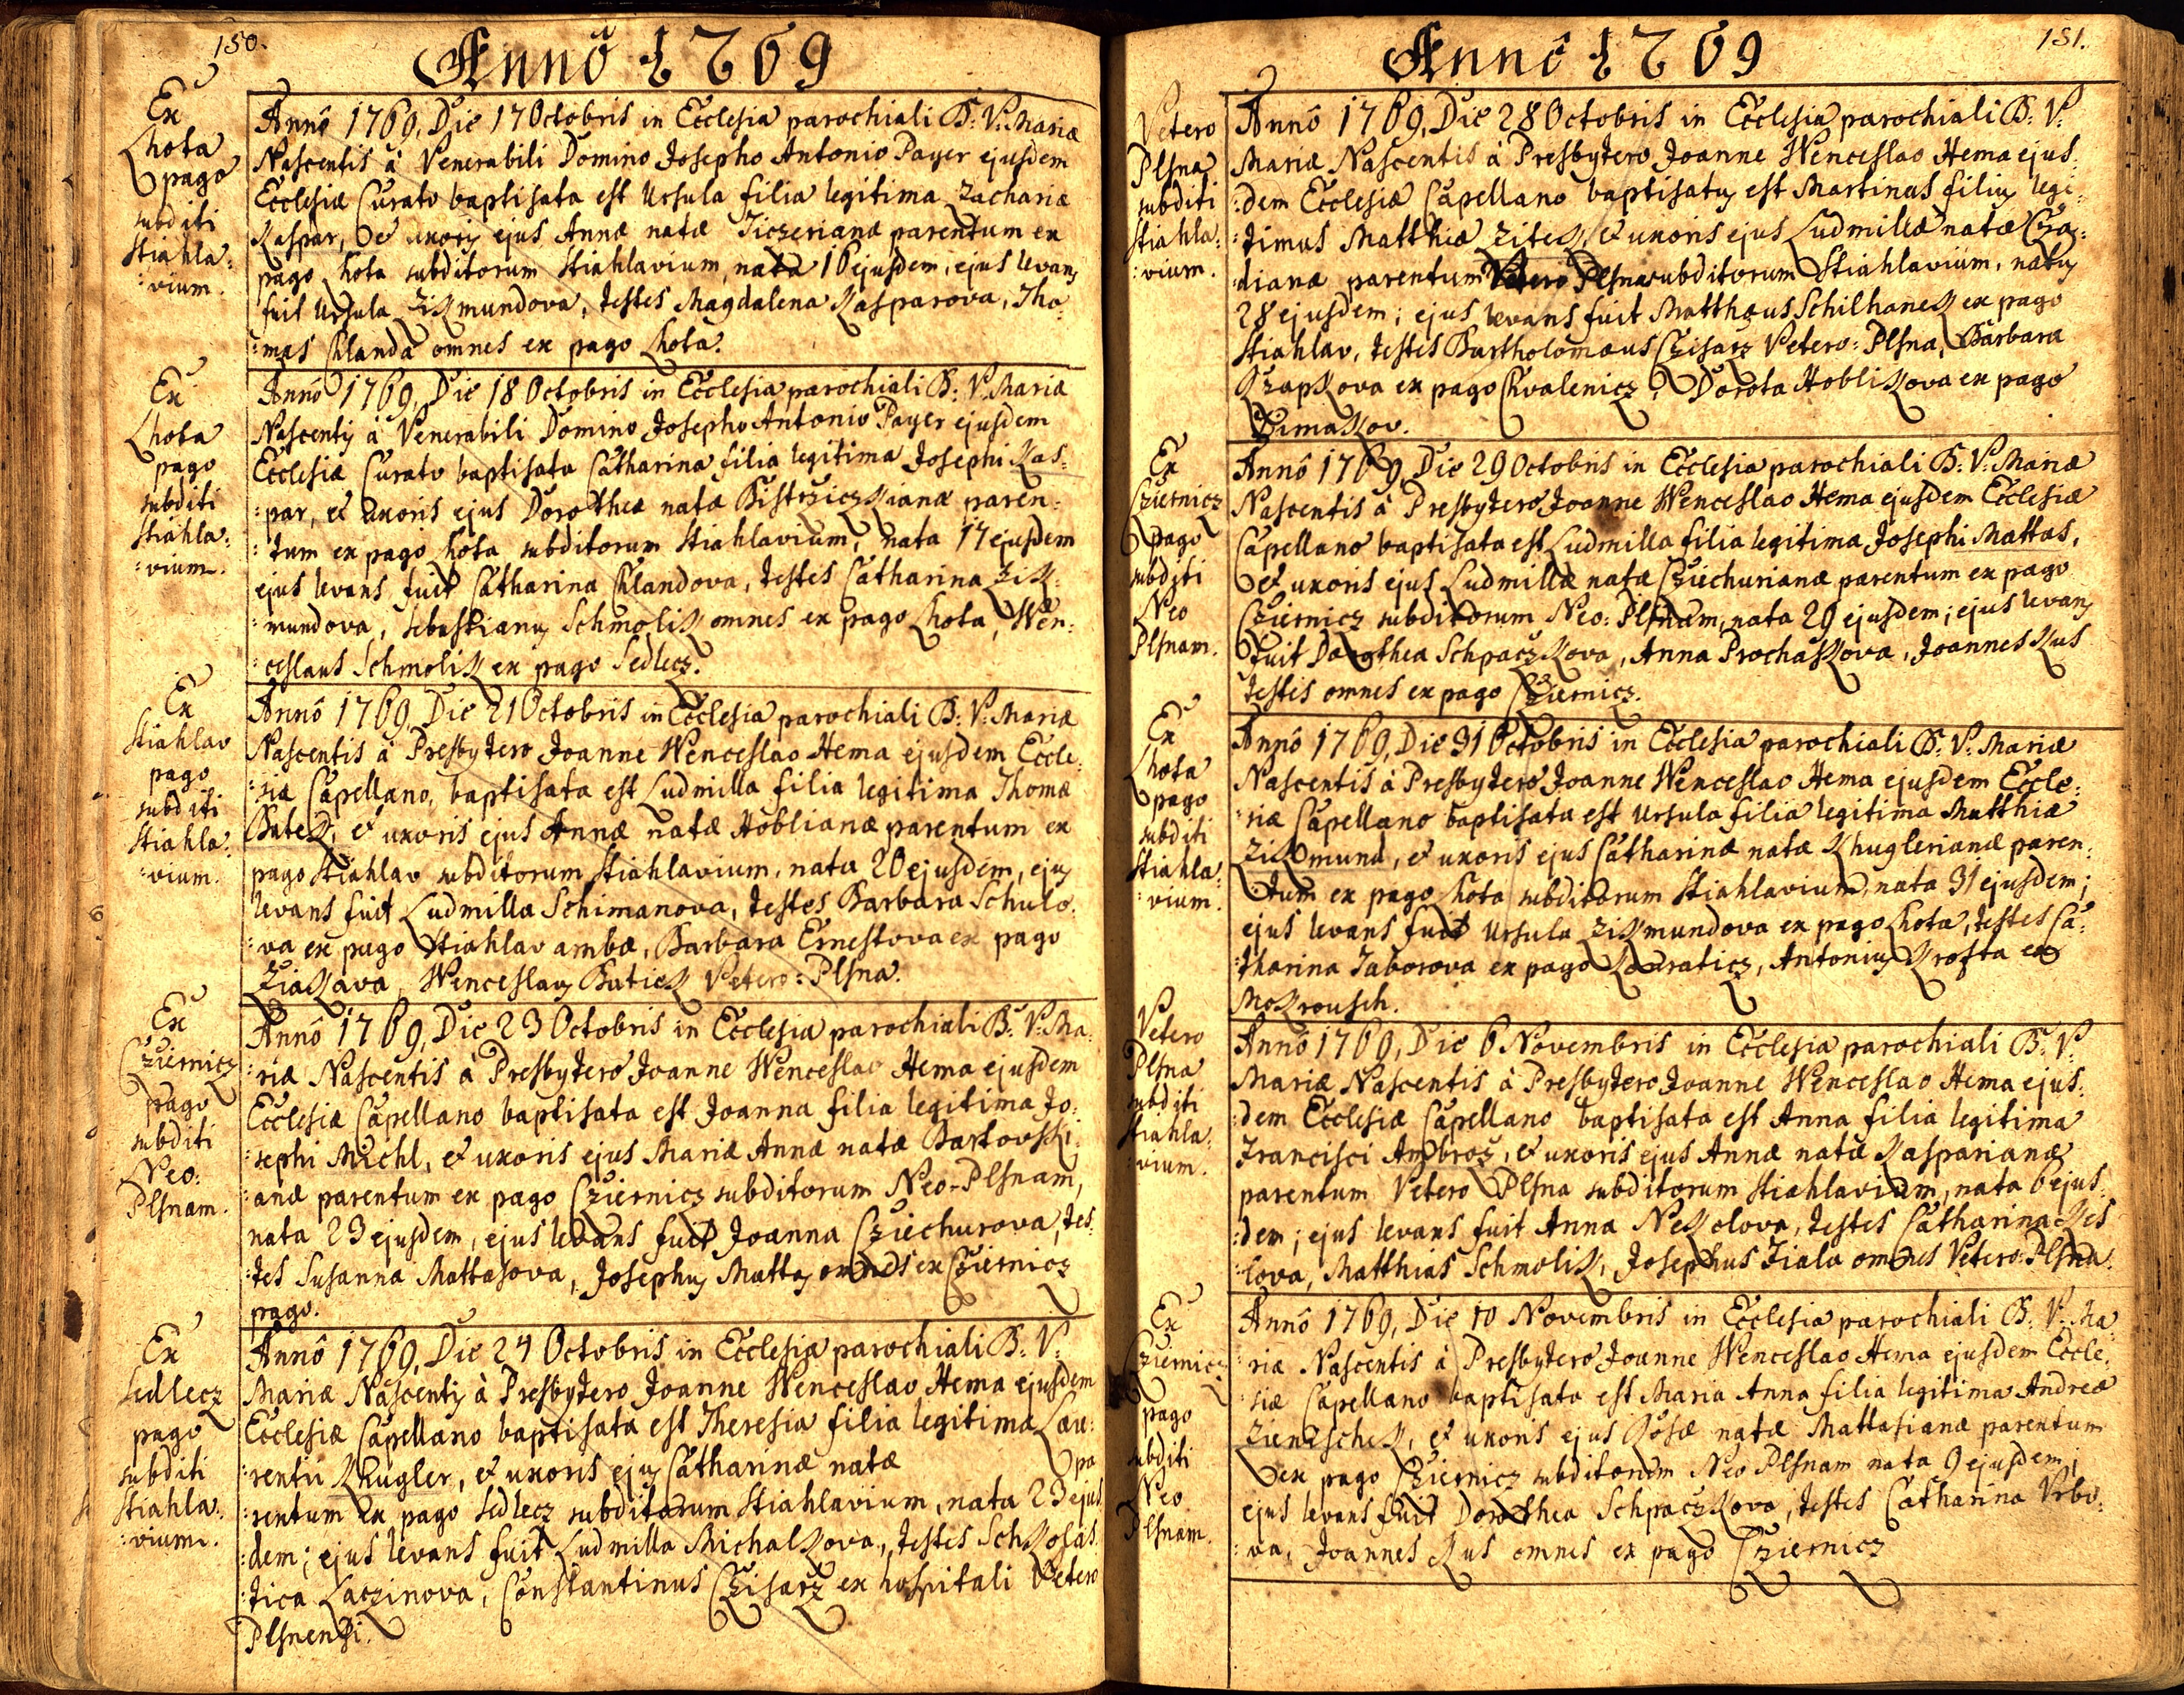 150.
Annô 1769
Ex
Lhota
pago
subditi
Stiahla:
:vium.
Annô 1769, Die 17 Octobris in Ecclesia parochiali B: V: Mariæ
Nascentis à Venerabili Domino Josepho Antonio Payer ejusdem
Ecclesiæ Curato baptisata est Ursula filia legitima Zachariæ
Kaspar, et uxoris ejus Annæ natæ Ticzerianæ parentum ex
pago Lhota subditorum Stiahlavium, nata 16 ejusdem, ejus levans
fuit Ursula Zikmundova, testes Magdalena Kasparova, Tho:
:mas Chlanda omnes ex pago Lhota.
Ex
Lhota
pago
subditi
Stiahla:
:vium.
Annô 1769, Die 18 Octobris in Ecclesia parochiali B: V: Mariæ
Nascentis à Venerabili Domino Josepho Antonio Payer ejusdem
Ecclesiæ Curato baptisata Catharina filia legitima Josephi Kas:
:par, et uxoris ejus Dorotheæ natæ Bistrziczkianæ paren:
:tum ex pago Lhota subditorum Stiahlavium, nata 17 ejusdem
ejus levans fuit Catharina Chlandova, testes Catharina Zik:
:mundova, Sebastianus Schmolik omnes ex pago Lhota, Wen:
:ceslaus Schmolik ex pago Sedlecz.
Ex
Stiahlav
pago
subditi
Stiahla:
:vium.
Annô 1769, Die 21 Octobris in Ecclesia parochiali B: V: Mariæ
Nascentis à Presbytero Joanne Wenceslao Hema ejusdem Eccle:
:siæ Capellano, baptisata est Ludmilla filia legitima Thomæ
Batek, et uxoris ejus Annæ natæ Hoblianæ parentum ex
pago Stiahlav subditorum Stiahlavium, nata 20 ejusdem, ejus
levans fuit Ludmilla Schimanova, testes Barbara Schulo:
:va ex pago Stiahlav ambæ, Barbara Ernestova ex pago
Ziakava, Wenceslaus Batiek Vetero: Plsna.
Ex
Cziernicz
pago
subditi
Neo:
Plsnam.
Annô 1769, Die 23 Octobris in Ecclesia parochiali B: V: Ma:
:riæ Nascentis à Presbytero Joanne Wenceslao Hema ejusdem
Ecclesiæ Capellano baptisata est Joanna filia legitima Jo:
:sephi Michl, et uxoris ejus Mariæ Annæ natæ Bartovski:
:anæ parentum ex pago Cziernicz subditorum Neo-Plsnam,
nata 23 ejusdem, ejus levans fuit Joanna Cziechurova, tes:
:tes Susanna Mattasova, Josephus Mattas omnes ex Cziernicz
pago.
Ex
Sedlecz
pago
subditi
Stiahla:
:vium.
Annô 1769, Die 24 Octobris in Ecclesia parochiali B: V:
Mariæ Nascentis à Presbytero Joanne Wenceslao Hema ejusdem
Ecclesiæ Capellano baptisata est Theresia filia legitima Lau:
:rentii Khugler, et uxoris ejus Catharinæ natæ pa
:rentum ex pago Sedlecz subditorum Stiahlavium, nata 23 ejus:
:dem; ejus levans fuit Ludmilla Michalkova, testes Schkolas:
:tica Laczinova, Constantinus Czisarz ex hospitali Vetero
Plsnensi.
151.
Annô 1769
Vetero
Plsna
subditi
Stiahla:
:vium.
Annô 1769, Die 28 Octobris in Ecclesia parochiali B: V:
Mariæ Nascentis à Presbytero Joanne Wenceslao Hema ejus:
:dem Ecclesiæ Capellano baptisatus est Martinus filius legi:
:timus Matthiæ Zitek, et uxoris ejus Ludmillæ natæ Cza:
:dianæ parentum Vetero Plsna subditorum Stiahlavium, natus
28 ejusdem; ejus levans fuit Matthæus Schilhanek ex pago
Stiahlav, testes Bartholomæus Czisarz Vetero: Plsna, Barbara
Czapkova ex pago Chvalenicz, Dorota Hoblikova ex pago
Timakov.
Ex
Cziernicz
pago
subditi
Neo
Plsnam.
Annô 1769, Die 29 Octobris in Ecclesia parochiali B: V: Mariæ
Nascentis à Presbytero Joanne Wenceslao Hema ejusdem Ecclesiæ
Capellano baptisata est Ludmilla filia legitima Josephi Mattas,
et uxoris ejus Ludmillæ natæ Cziechurianæ parentum ex pago
Cziernicz subditorum Neo: Plsnam, nata 29 ejusdem; ejus levans
fuit Dorothea Schpaczkova, Anna Prochaskova, Joannes Kus
testis omnes ex pago Cziernicz.
Ex
Lhota
pago
subditi
Stiahla:
:vium.
Annô 1769, Die 31 Octobris in Ecclesia parochiali B: V: Mariæ
Nascentis à Presbytero Joanne Wenceslao Hema ejusdem Eccle:
:siæ Capellano baptisata est Ursula filia legitima Matthiæ
Zikmund, et uxoris ejus Catharinæ natæ Khuglerianæ paren:
:tum ex pago Lhota subditorum Stiahlavium, nata 31 ejusdem;
ejus levans fuit Ursula Zikmundova ex pago Lhota, testes Ca:
:tharina Taborova ex pago Kauraticz, Antonius Krofta ex
Mokrousch.
Vetero
Plsna
subditi
Stiahla:
:vium.
Annô 1769, Die 6 Novembris in Ecclesia parochiali B: V:
Mariæ Nascentis à Presbytero Joanne Wenceslao Hema ejus:
:dem Ecclesiæ Capellano baptisata est Anna filia legitima
Francisci Ambroz, et uxoris ejus Annæ natæ Kasparianæ
parentum Vetero Plsna subditorum Stiahlavium, nata 6 ejus:
:dem; ejus levans fuit Anna Nekolova, testes Catharina Kes
:lova, Matthias Schmolik, Josephus Fiala omnes Vetero: Plsna.
Ex
Cziernicz
pago
subditi
Neo
Plsnam.
Annô 1769, Die 10 Novembris in Ecclesia parochiali B: V: Ma:
:riæ Nascentis à Presbytero Joanne Wenceslao Hema ejusdem Eccle:
:siæ Capellano baptisata est Maria Anna filia legitima Andreæ
Zienischek, et uxoris ejus Rosæ natæ Mattasianæ parentum
ex pago Cziernicz subditorum Neo Plsnam nata 9 ejusdem;
ejus levans fuit Dorothea Schpaczkova, testes Catharina Vrbo:
:va, Joannes Kus omnes ex pago Cziernicz